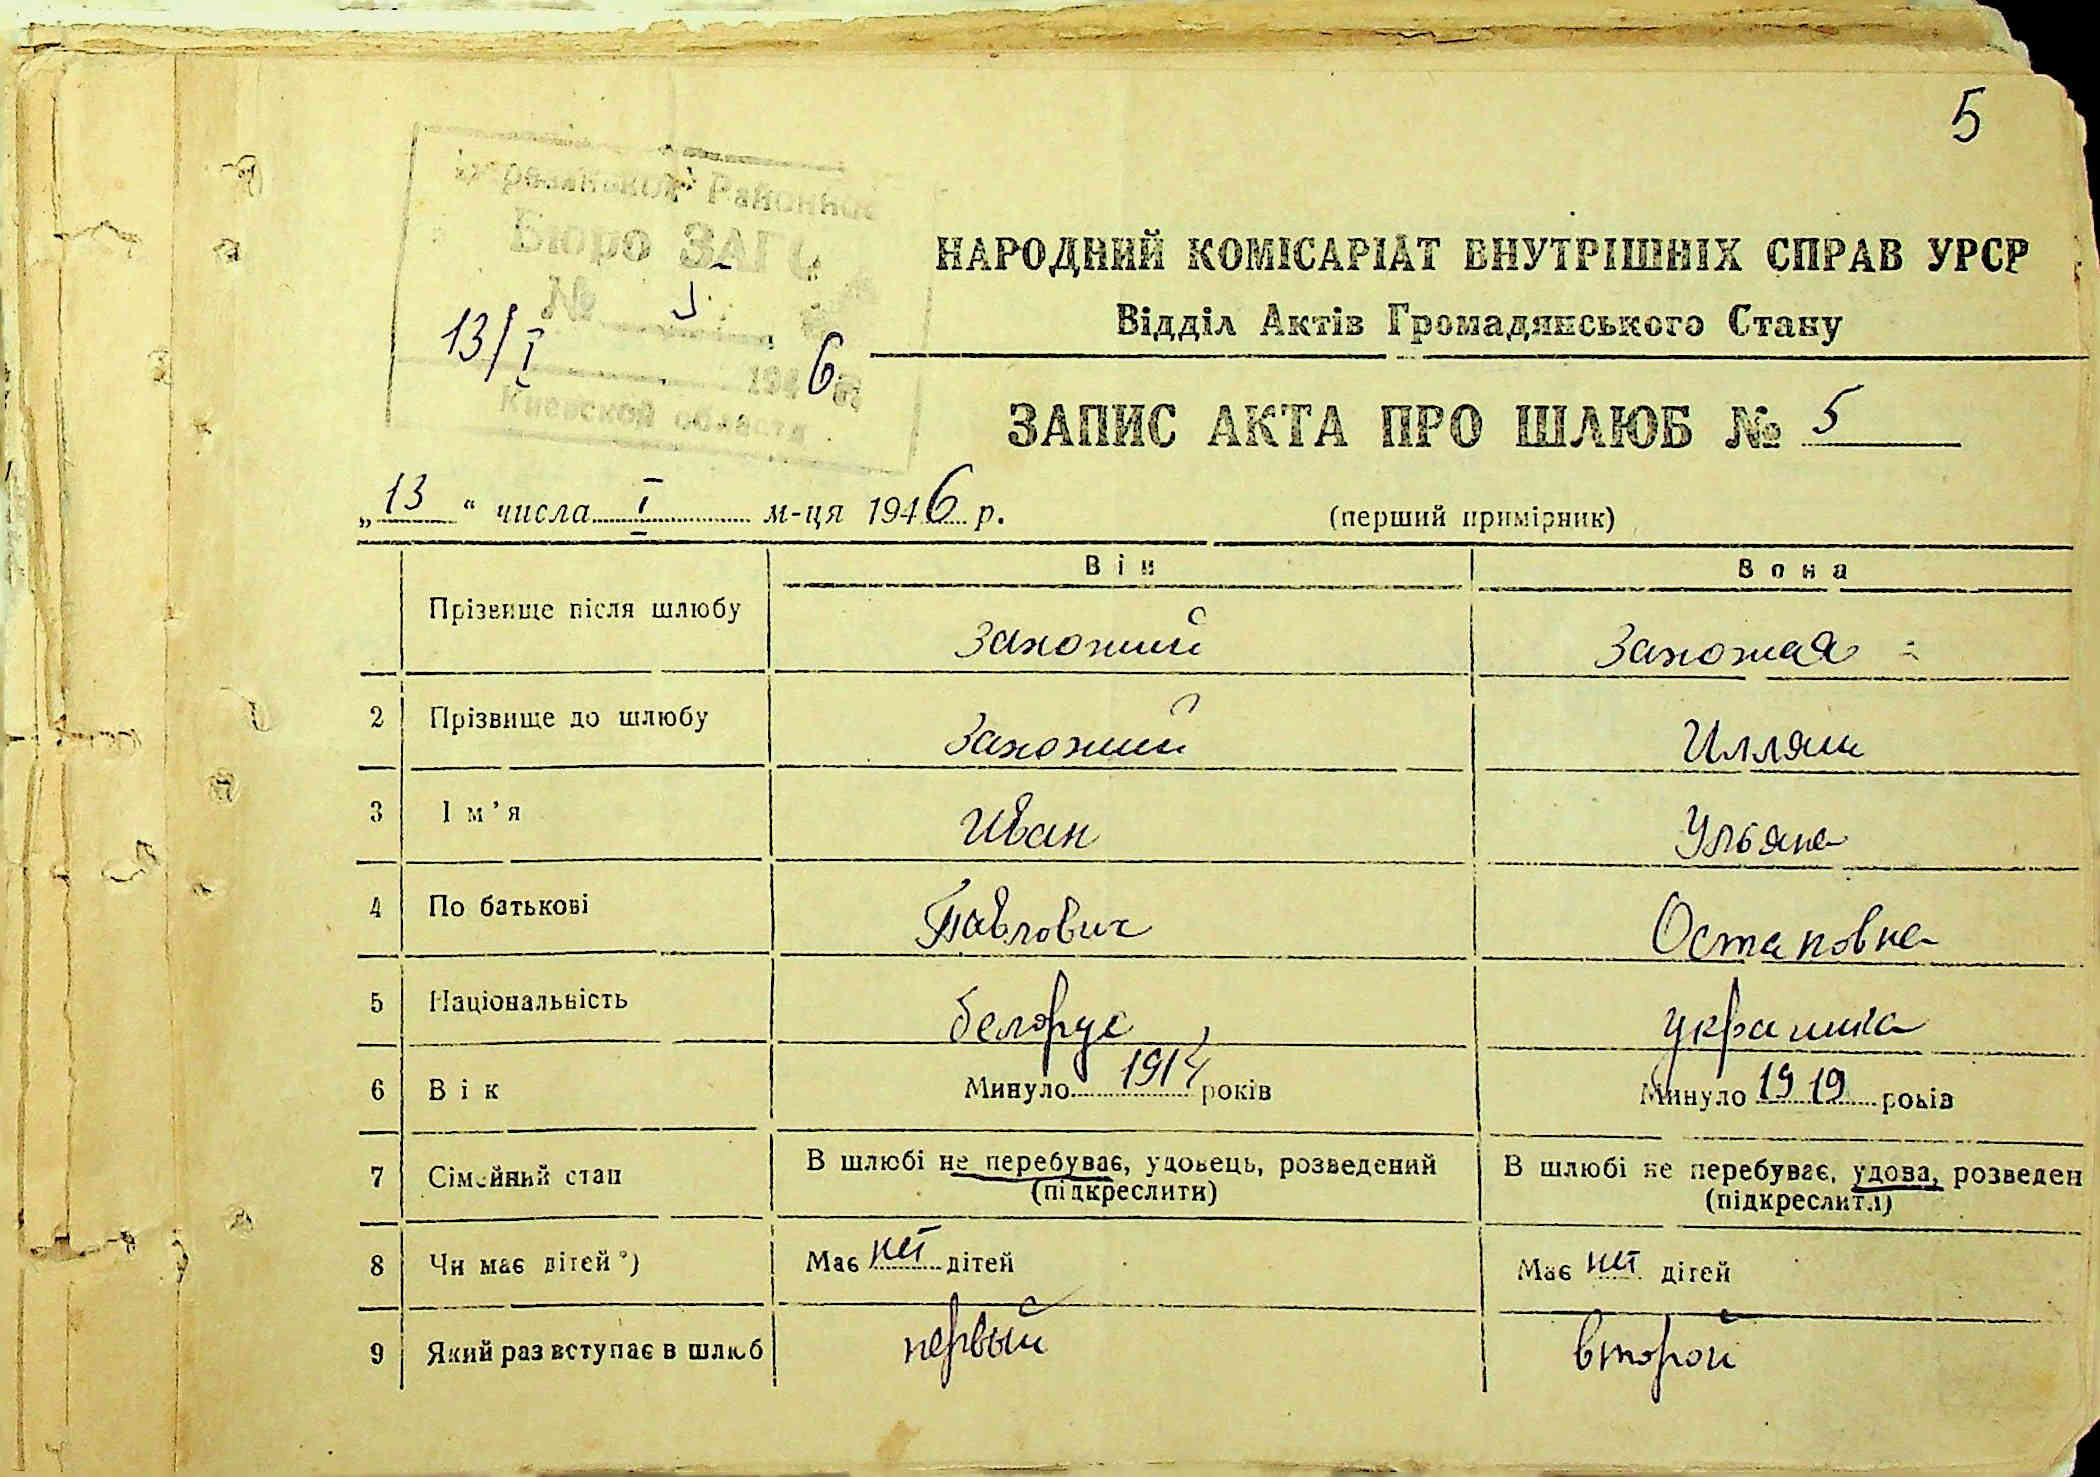 5
Районное
Бюро ЗАГС
№ 5
13/I 1946
Киевской области
НАРОДНИЙ КОМІСАРІАТ ВНУТРІШНІХ СПРАВ УРСР
Відділ Актів Громадянського Стану
ЗАПИС АКТА ПРО ШЛЮБ № 5
„13“ числа I м-ця 1946 р. (перший примірник)
Він Вона
Прізвище після шлюбу Захожий Захожая
2 Прізвище до шлюбу Захожий Илляш
3 Ім’я Иван Ульяна
4 По батькові Павлович Остаповна
5 Національність белорус украинка
6 Вік Минуло 1914 років Минуло 1919 років
7 Сімейний стан В шлюбі не перебуває, удовець, розведений (підкреслити) В шлюбі не перебуває, удова, розведен (підкреслити)
8 Чи має дітей *) Має нет дітей Має нет дітей
9 Який раз вступає в шлюб первый второй